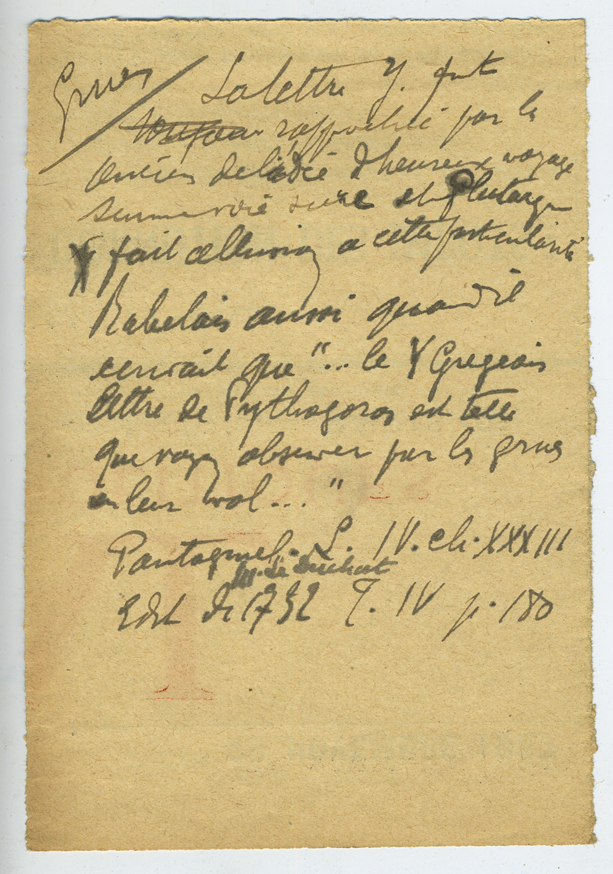 Grues
La lettre Y. fut
toujours rapprochée par les
anciens de l'idée d'heureux voyage
et Plutarque
Y fait allusion a cette particularité
Rabelais aussi quand il
ecrivait que "... le Y Gregeois
lettre de Pythagoras est telle
que voyez observer par les grues
en leur vol..."
Pantagruel. L. IV. ch. XXXIII
M. le Duchat
Edit de 1732 T. IV p. 180